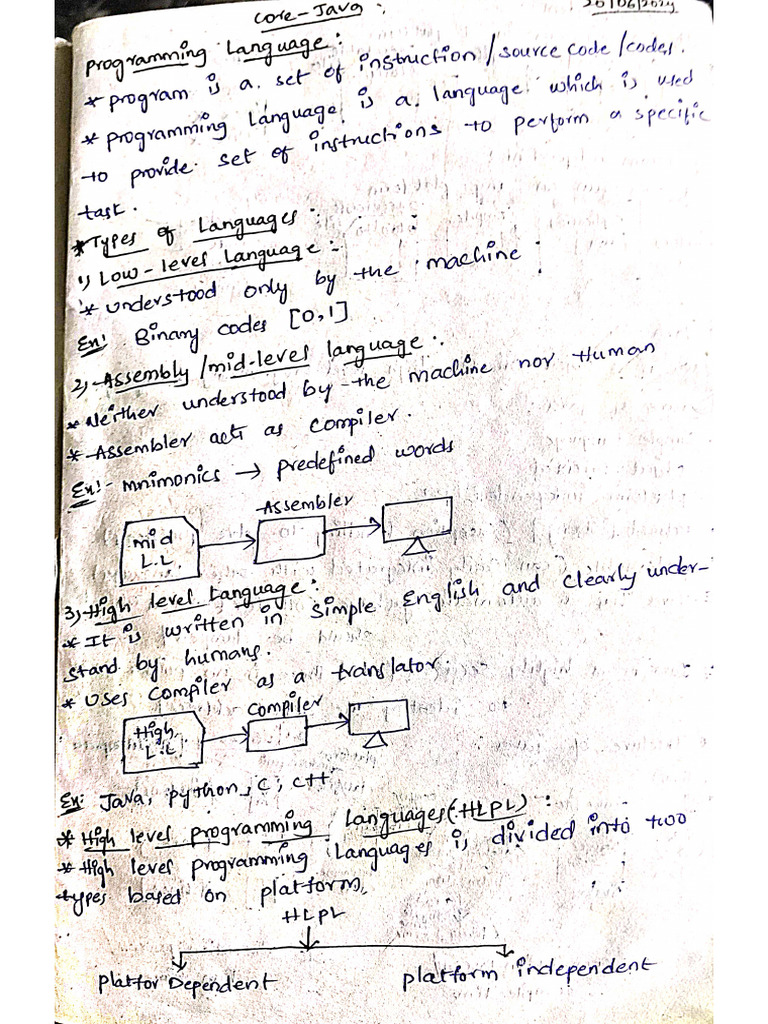 Core-Java :
20/06/2024
Programming Language :
* program is a set of instruction/source code/codes.
* programming Language is a language which is used
to provide set of instructions to perform a specific
task.
* Types of Languages :
1) Low-level Language :-
* understood only by the machine :
Ex: Binary codes [0,1]
2) Assembly/mid-level language :.
* Neither understood by the machine nor Human
* Assembler acts as compiler.
Ex:- Mnimonics → predefined words
Assembler
mid
L.L.
3) High level Language :
* It is written in simple English and clearly under-
stand by humans.
* Uses compiler as a translator.
Compiler
High
L.L
Ex: Java, python, C, C++
* High level programming Languages (HLPL) :
* High level programming Languages is divided into two
types based on platform.
HLPL
platfor Dependent
platform independent